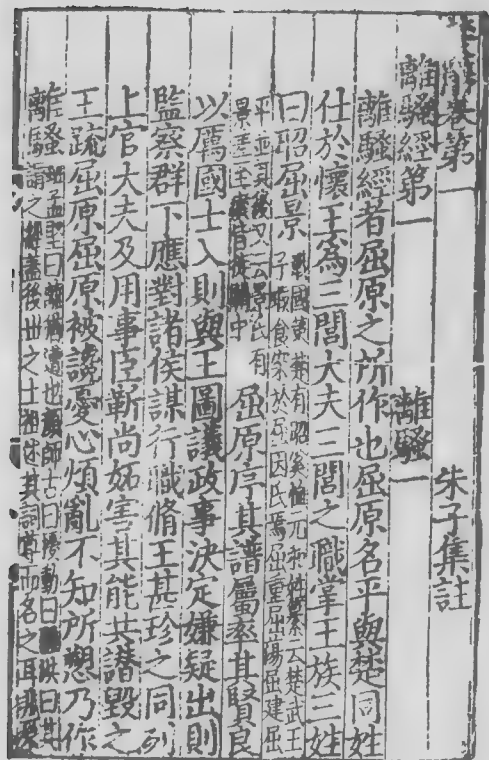 卷第一 朱子集註
離騷經第一 離騷一
離騷經者屈原之所作也屈原名平與楚同姓
仕於懷王爲三閭大夫三閭之職掌王族三姓
曰昭屈景
戰國策楚有昭奚恤元和姓纂云楚武王
子瑕食采於屈因氏焉屈重屈蕩屈建屈
平並其後又云景氏有
景差至漢皆徙關中
屈原序其譜屬率其賢良
以厲國士入則與王圖議政事決定嫌疑出則
監察群下應對諸侯謀行職脩王甚珍之同列
上官大夫及用事臣靳尚妬害其能共譖毀之
王疏屈原屈原被讒憂心煩亂不知所愬乃作
離騷
班孟堅曰離猶遭也顏師古曰擾動曰洪曰其
謂之經蓋後世之士祖述其詞尊而名之耳非屈原